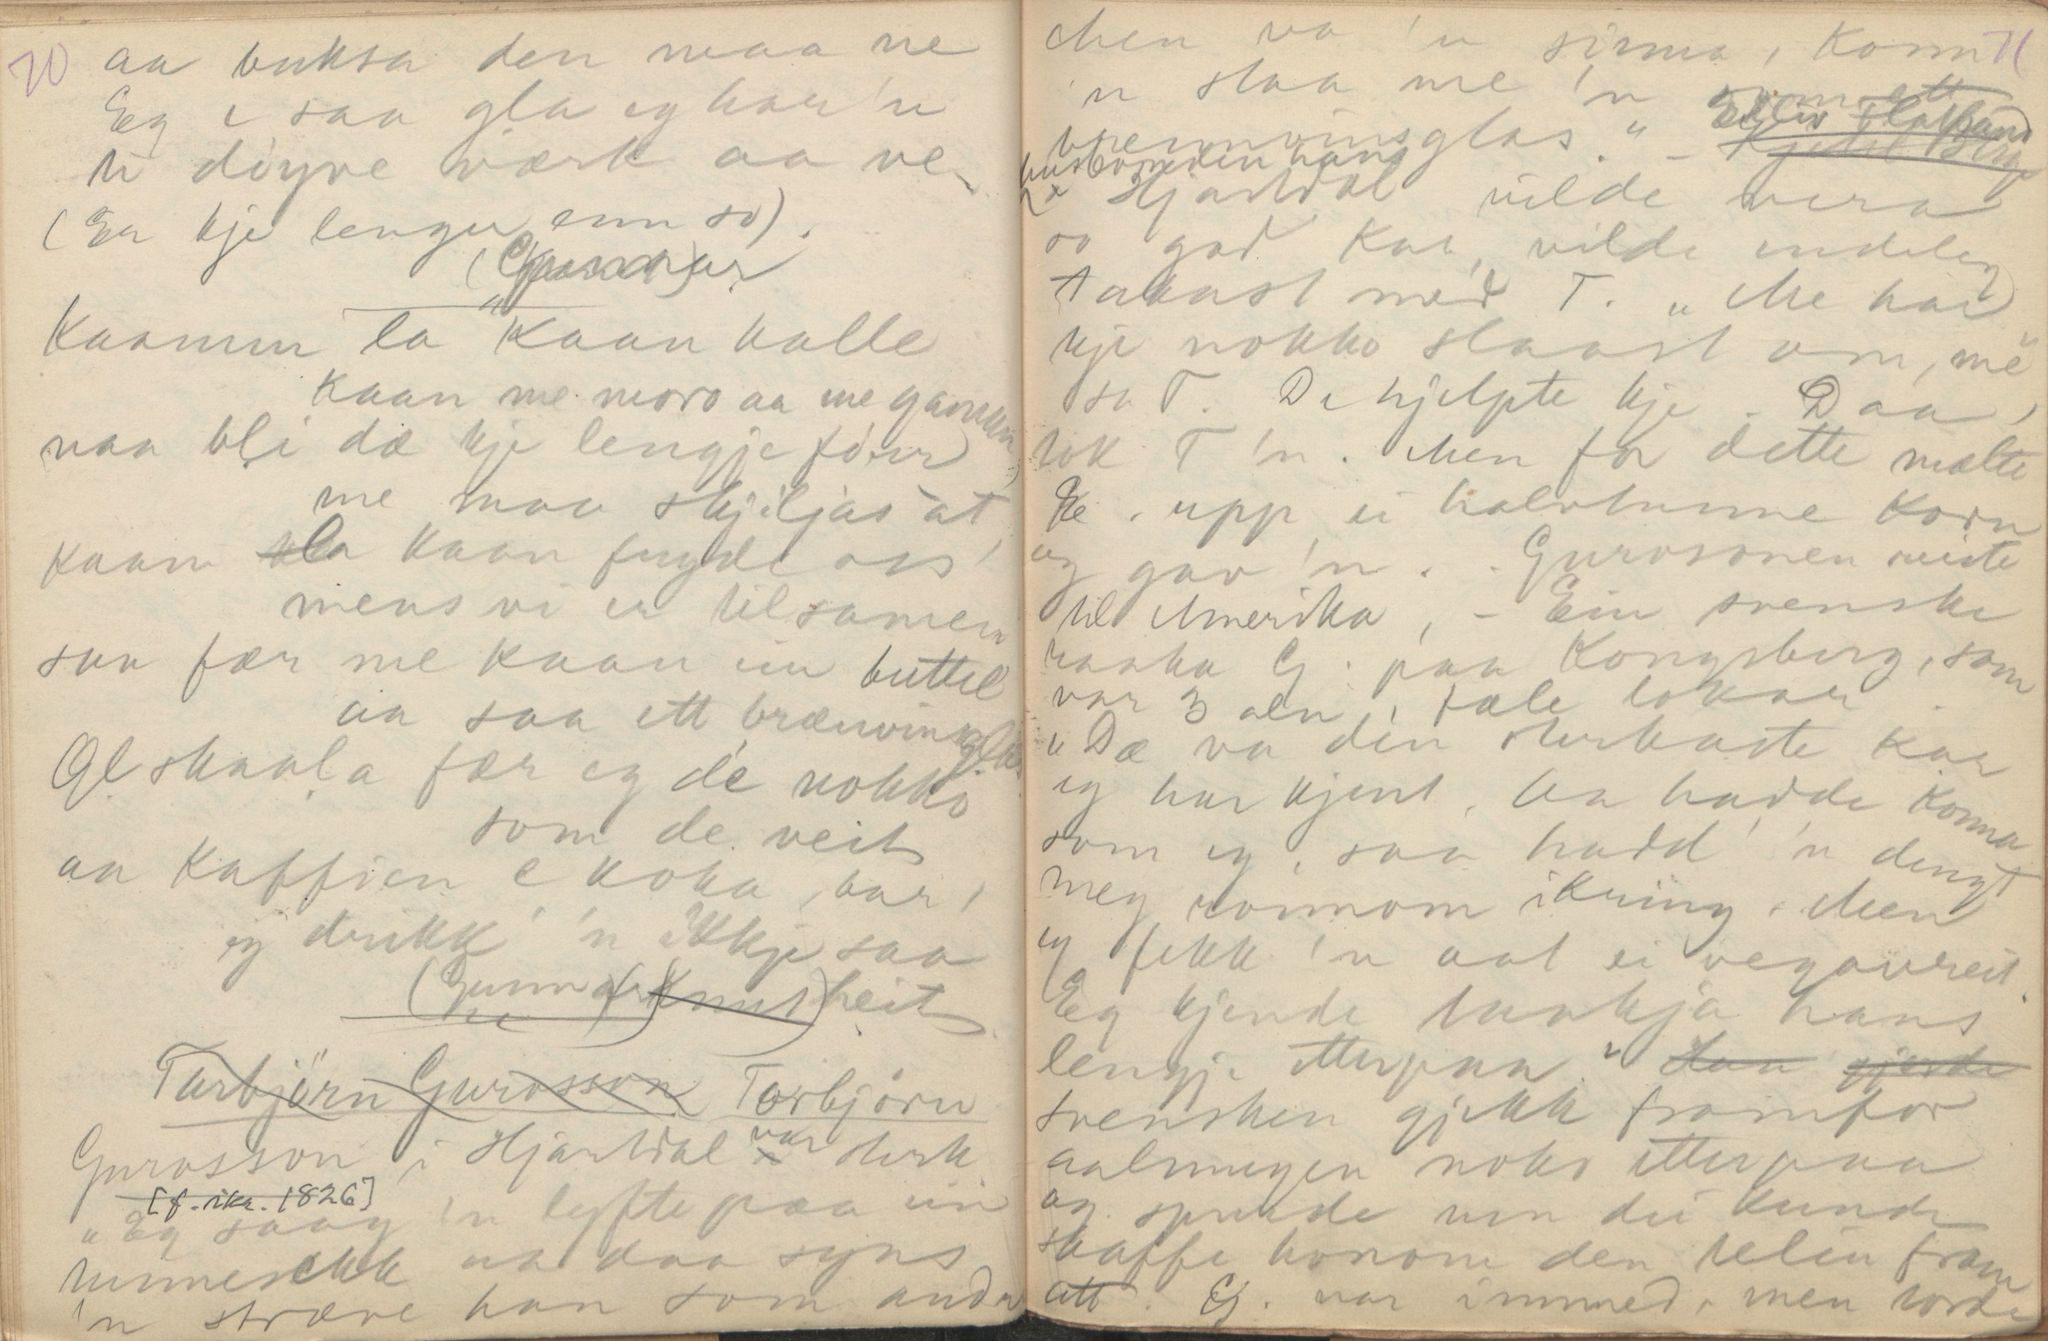 70
aa buksa den maa ne
Eg e saa gla eg har 'n
te döyve værk aa ve.
(Er kje lenger enn so).
(Gunnar
Kaanum la "Kaan kalle
Kaan me moro aa me gamman
naa bli dæ kje lengje föur
me maa skjiljas at
Kaan la kaan frygde oss
mens vi er tilsamen
saa fær me kaan ein buttel
aa saa ett brænvinsglas
Ol skaala fær eg de nokko
som de veit
aa Kaffien e koka, bar,
eg drikk 'n ikkje saa
(Gunnar Knut) heit
Tarbjörn Gurosson Torbjörn
Gurosson i Hjartdal var sterk
[f. ikr. 1826]
"Eg saag 'n lyfte paa ein
tunnesekk aa daa syns
'n stræve han som andre
71
Men va 'n sinna, Konn
'n slaa me 'n som ett
brennvinsglas." – Eilev Slaakaas
husbonden hans
x Hjartdal vilde vera
so god Kar, vilde endeleg
takast med T. "Me har
kje nokko slaast om, me"
sa T. De hjelpte kje. Daa
tok T 'n. Men for dette mælte
Ke. upp ei halvtunne Korn
og gav 'n. Gurosonen reiste
til Amerika, – Ein svenske
raaka Gj. paa Kongsberg, som
var 3 aln, fæle lokar.
"Dæ va den sterkaste kar
eg har kjent. Aa hadde 'n konna
som eg, saa hadd 'n dengt
meg romnom ikring. Men
eg fekk 'n aat ei vegaureit.
Eg kjende taakja hans
lengje etterpaa." Han gjorde
svensken gjekk framfor
aalmugen noko etterpaa
og spurde um dei kunde
skaffe honom den telen fram
att. Gj. var immed, men torde